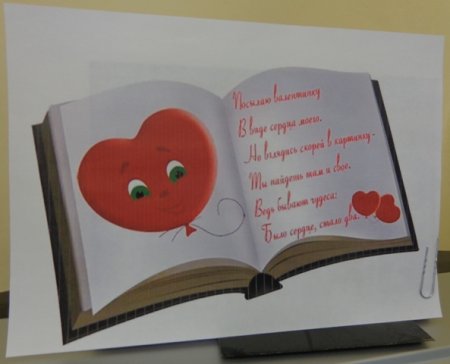 Посылаю валентинку
В виде сердца моего.
Но взглядись скорей в картинку-
Ты найдешь там и свое.
Ведь бывают чудеса:
Было сердце, стало два.